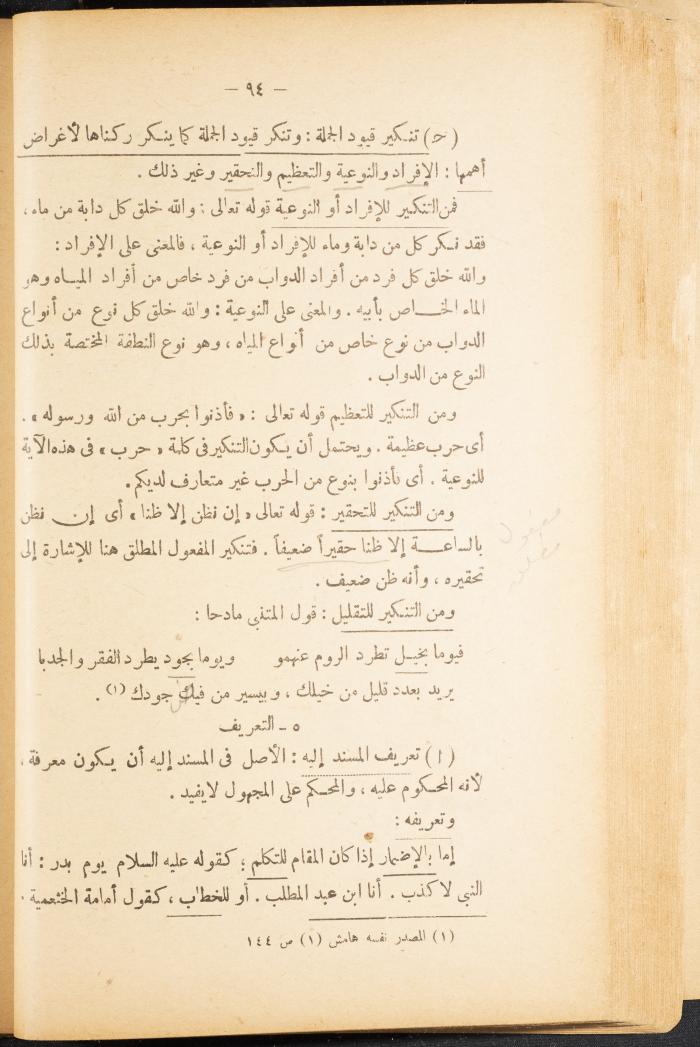 — ٩٤ —
(ح) تنكير قيود الجملة : وتنكر قيود الجملة كما ينكر ركناها لأغراض
أهمها : الإفراد والنوعية والتعظيم والتحقير وغير ذلك .
فمن التنكير للإفراد أو النوعية قوله تعالى : والله خلق كل دابة من ماء ،
فقد نكر كل من دابة وماء للإفراد أو النوعية ، فالمعنى على الإفراد :
والله خلق كل فرد من أفراد الدواب من فرد خاص من أفراد المياه وهو
الماء الخاص بأبيه . والمعنى على النوعية : والله خلق كل نوع من أنواع
الدواب من نوع خاص من أنواع المياه ، وهو نوع النطفة المختصة بذلك
النوع من الدواب .
ومن التنكير للتعظيم قوله تعالى : « فأذنوا بحرب من الله ورسوله » .
أى حرب عظيمة . ويحتمل أن يكون التنكير فى كلمة « حرب » فى هذه الآية
للنوعية . أى فأذنوا بنوع من الحرب غير متعارف لديكم .
ومن التنكير للتحقير : قوله تعالى « إن نظن إلا ظنا » أى إن نظن
بالساعة إلا ظنا حقيراً ضعيفاً . فتنكير المفعول المطلق هنا للإشارة إلى
تحقيره ، وأنه ظن ضعيف .
ومن التنكير للتقليل : قول المتنبى مادحا :
فيوما بخيل تطرد الروم عنهمو ويوما بجود يطرد الفقر والجدبا
يريد بعدد قليل من خيلك ، وبيسير من فيض جودك (١) .
٥ - التعريف
(ا) تعريف المسند إليه : الأصل فى المسند إليه أن يكون معرفة ،
لأنه المحكوم عليه ، والحكم على المجهول لايفيد .
وتعريفه :
إما بالإضمار إذا كان المقام للتكلم ؛ كقوله عليه السلام يوم بدر : أنا
النبى لا كذب . أنا ابن عبد المطلب . أو للخطاب ، كقول أمامة الخثعمية .
(١) المصدر نفسه هامش (١) ص ١٤٤